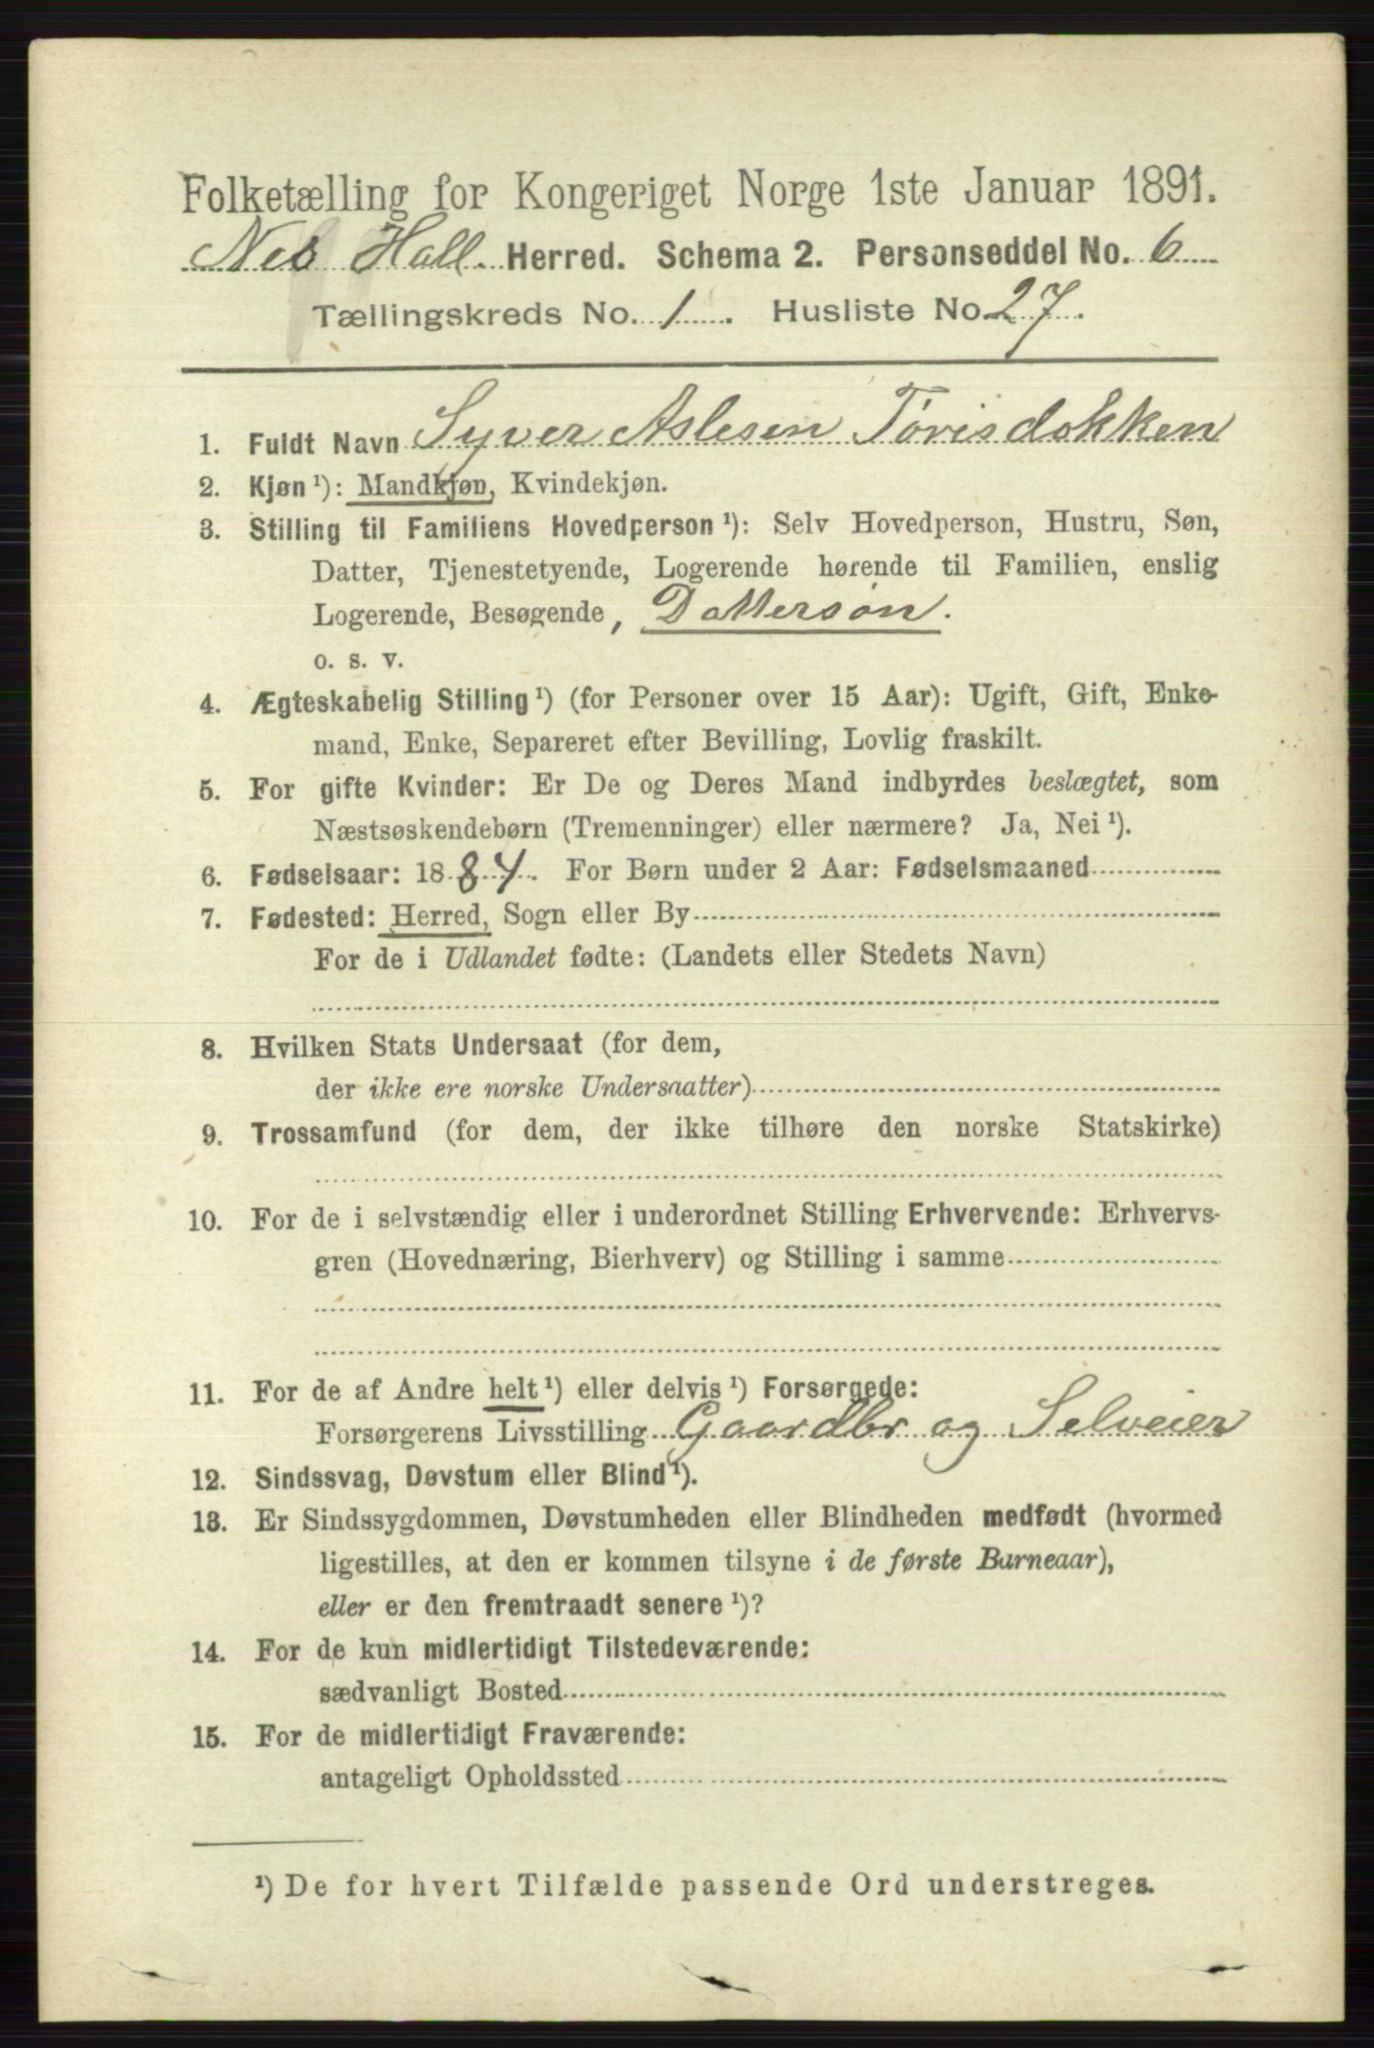 Folketælling for Kongeriget Norge 1ste Januar 1891.
Nes Hall. Herred. Schema 2. Personseddel No. 6
Tællingskreds No. 1. Husliste No. 27.
1. Fuldt Navn Syver Aslesen Tørisdokken
2. Kjøn ¹): Mandkjøn, Kvindekjøn.
3. Stilling til Familiens Hovedperson ¹): Selv Hovedperson, Hustru, Søn,
Datter, Tjenestetyende, Logerende hørende til Familien, enslig
Logerende, Besøgende, Dattersøn.
o. s. v.
4. Ægteskabelig Stilling ¹) (for Personer over 15 Aar): Ugift, Gift, Enke-
mand, Enke, Separeret efter Bevilling, Lovlig fraskilt.
5. For gifte Kvinder: Er De og Deres Mand indbyrdes beslægtet, som
Næstsøskendebørn (Tremenninger) eller nærmere? Ja, Nei ¹).
6. Fødselsaar: 1884. For Børn under 2 Aar: Fødselsmaaned
7. Fødested: Herred, Sogn eller By
For de i Udlandet fødte: (Landets eller Stedets Navn)
8. Hvilken Stats Undersaat (for dem,
der ikke ere norske Undersaatter)
9. Trossamfund (for dem, der ikke tilhøre den norske Statskirke)
10. For de i selvstændig eller i underordnet Stilling Erhvervende: Erhvervs-
gren (Hovednæring, Bierhverv) og Stilling i samme
11. For de af Andre helt ¹) eller delvis ¹) Forsørgede:
Forsørgerens Livsstilling Gaardbr og Selveier
12. Sindssvag, Døvstum eller Blind ¹).
13. Er Sindssygdommen, Døvstumheden eller Blindheden medfødt (hvormed
ligestilles, at den er kommen tilsyne i de første Barneaar),
eller er den fremtraadt senere ¹)?
14. For de kun midlertidigt Tilstedeværende:
sædvanligt Bosted
15. For de midlertidigt Fraværende:
antageligt Opholdssted
¹) De for hvert Tilfælde passende Ord understreges.